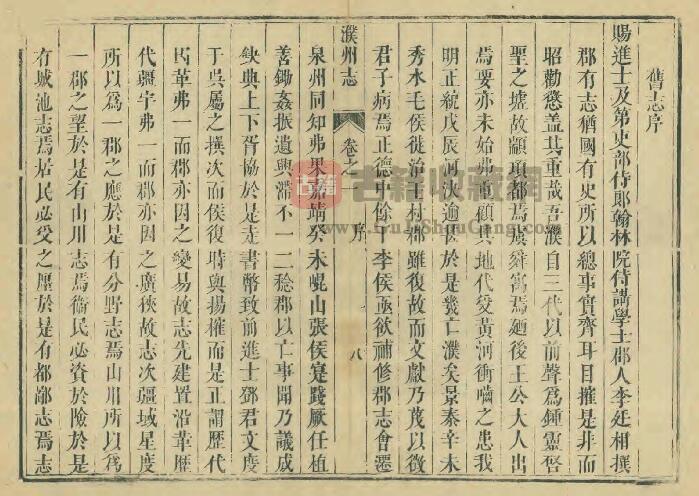 舊志序
賜進士及第吏部侍郎翰林院侍講學士郡人李廷相撰
郡有志猶國有史所以總事實齊耳目摧是非而
昭勸懲盖其重哉吾濮自三代以前聲為鍾靈啓
聖之墟故顓頊都焉虞舜寓焉廼後王公大人出
焉要亦未始弗重顧其地代受黃河衝嚙之患我
明正統戊辰河決逾 於是幾亡濮矣景泰辛未
秀水毛侯徙治王村郡雖復故而文獻乃茂以徵
君子病焉正德中餘 李侯亟欲補修郡志會遷
濮州志 卷之 序 八
泉州同知弗果嘉靖癸未崐山張侯寔踐厥任植
善鋤姦振遺興滯不一二稔郡以亡事聞乃議咸
缺典上下胥協於是走書幣致前進士鄧君文度
于吳屬之撰次而侯復時與揚搉而是正謂歷代
因革弗一而郡亦因之變易故志先建置沿革歷
代疆宇弗一而郡亦因之廣狹故志次疆域星度
所以為一郡之應於是有分野志焉山川所以為
一郡之望於是有山川志焉衞民必資於險於是
有城池志焉居民必受之廛於是有都鄙志焉志
古籍收藏網
www.GuJiShouCang.com